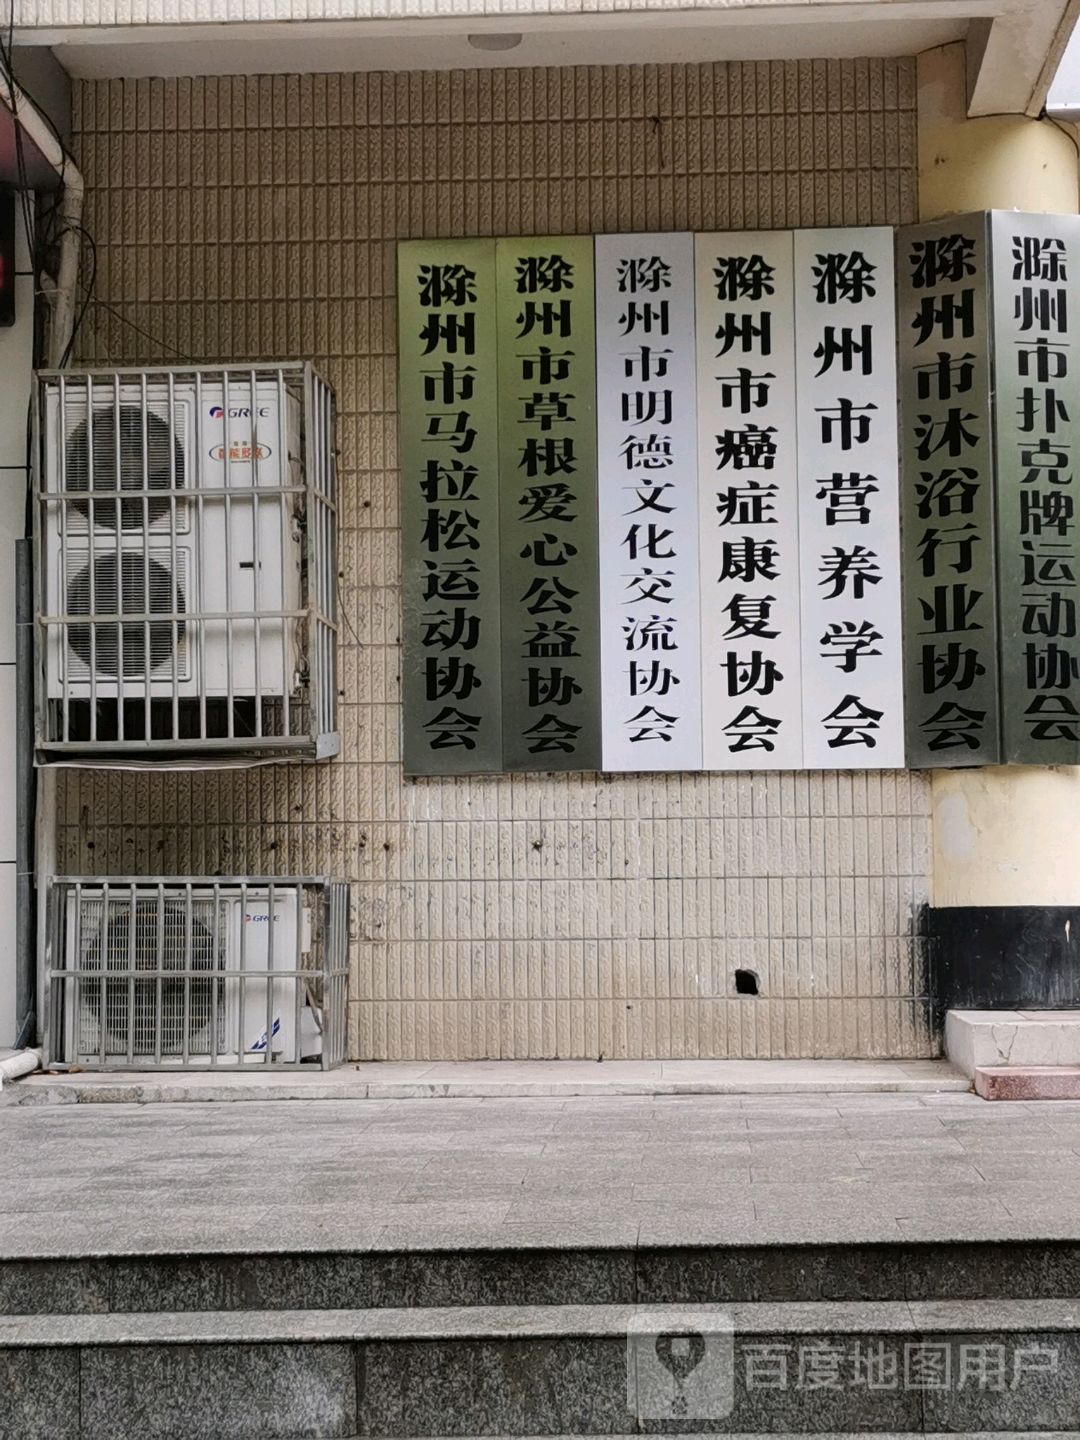 滁州市马拉松运动协会
滁州市草根爱心公益协会
滁州市明德文化交流协会
滁州市癌症康复协会
滁州市营养学会
滁州市沐浴行业协会
滁州市扑克牌运动协会
GREE
GREE
百度地图用户